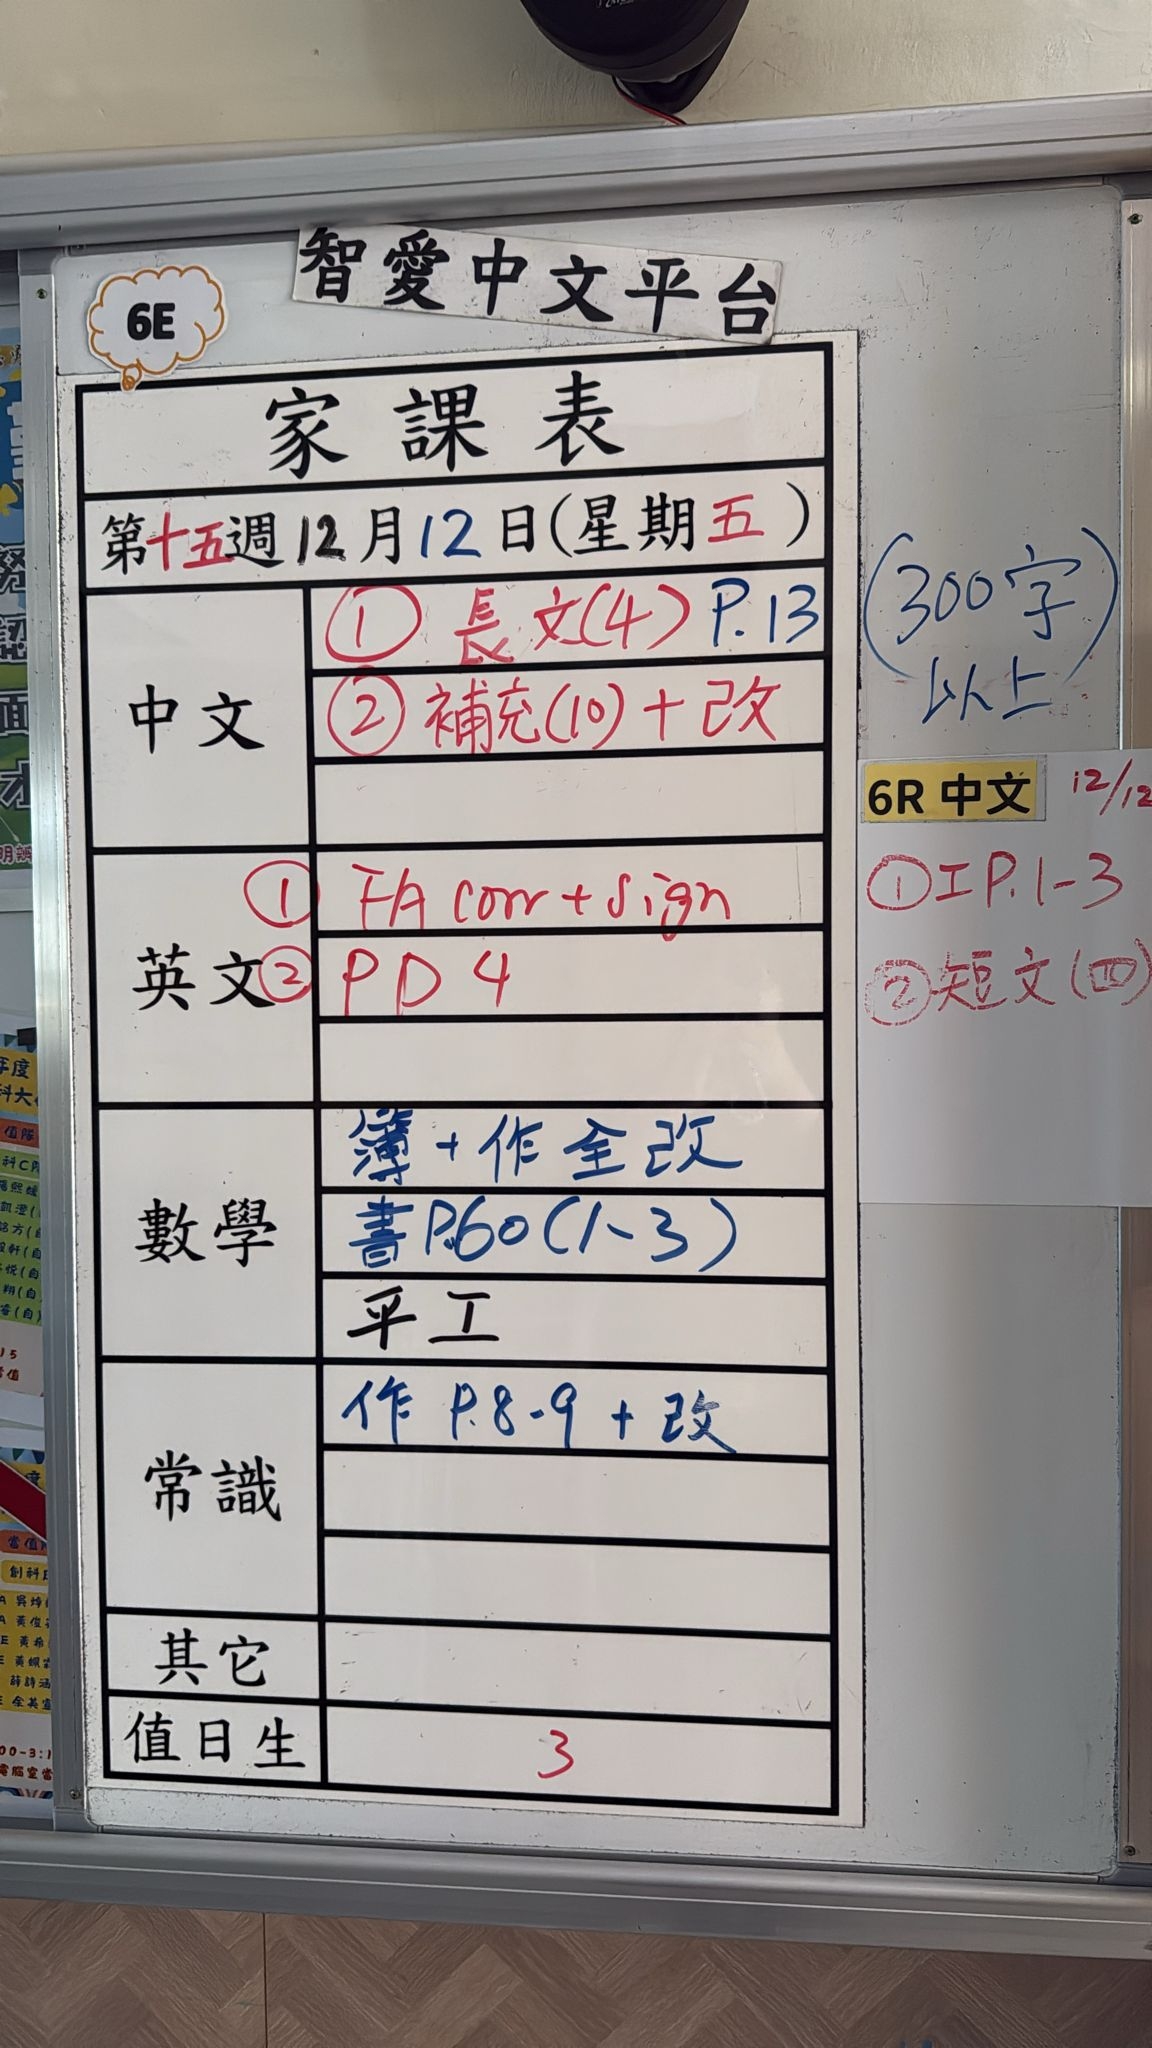 智愛中文平台
6E
家課表
第十五週12月12日(星期五)
中文
① 長文(4) P.13
(300字以上)
② 補充(10)+改
6R 中文 12/12
① 工P.1-3
② 短文(四)
英文
① FA corr + sign
② PD 4
數學
簿+作全改
書P.60(1-3)
平工
常識
作 P.8-9 + 改
其它
值日生
3